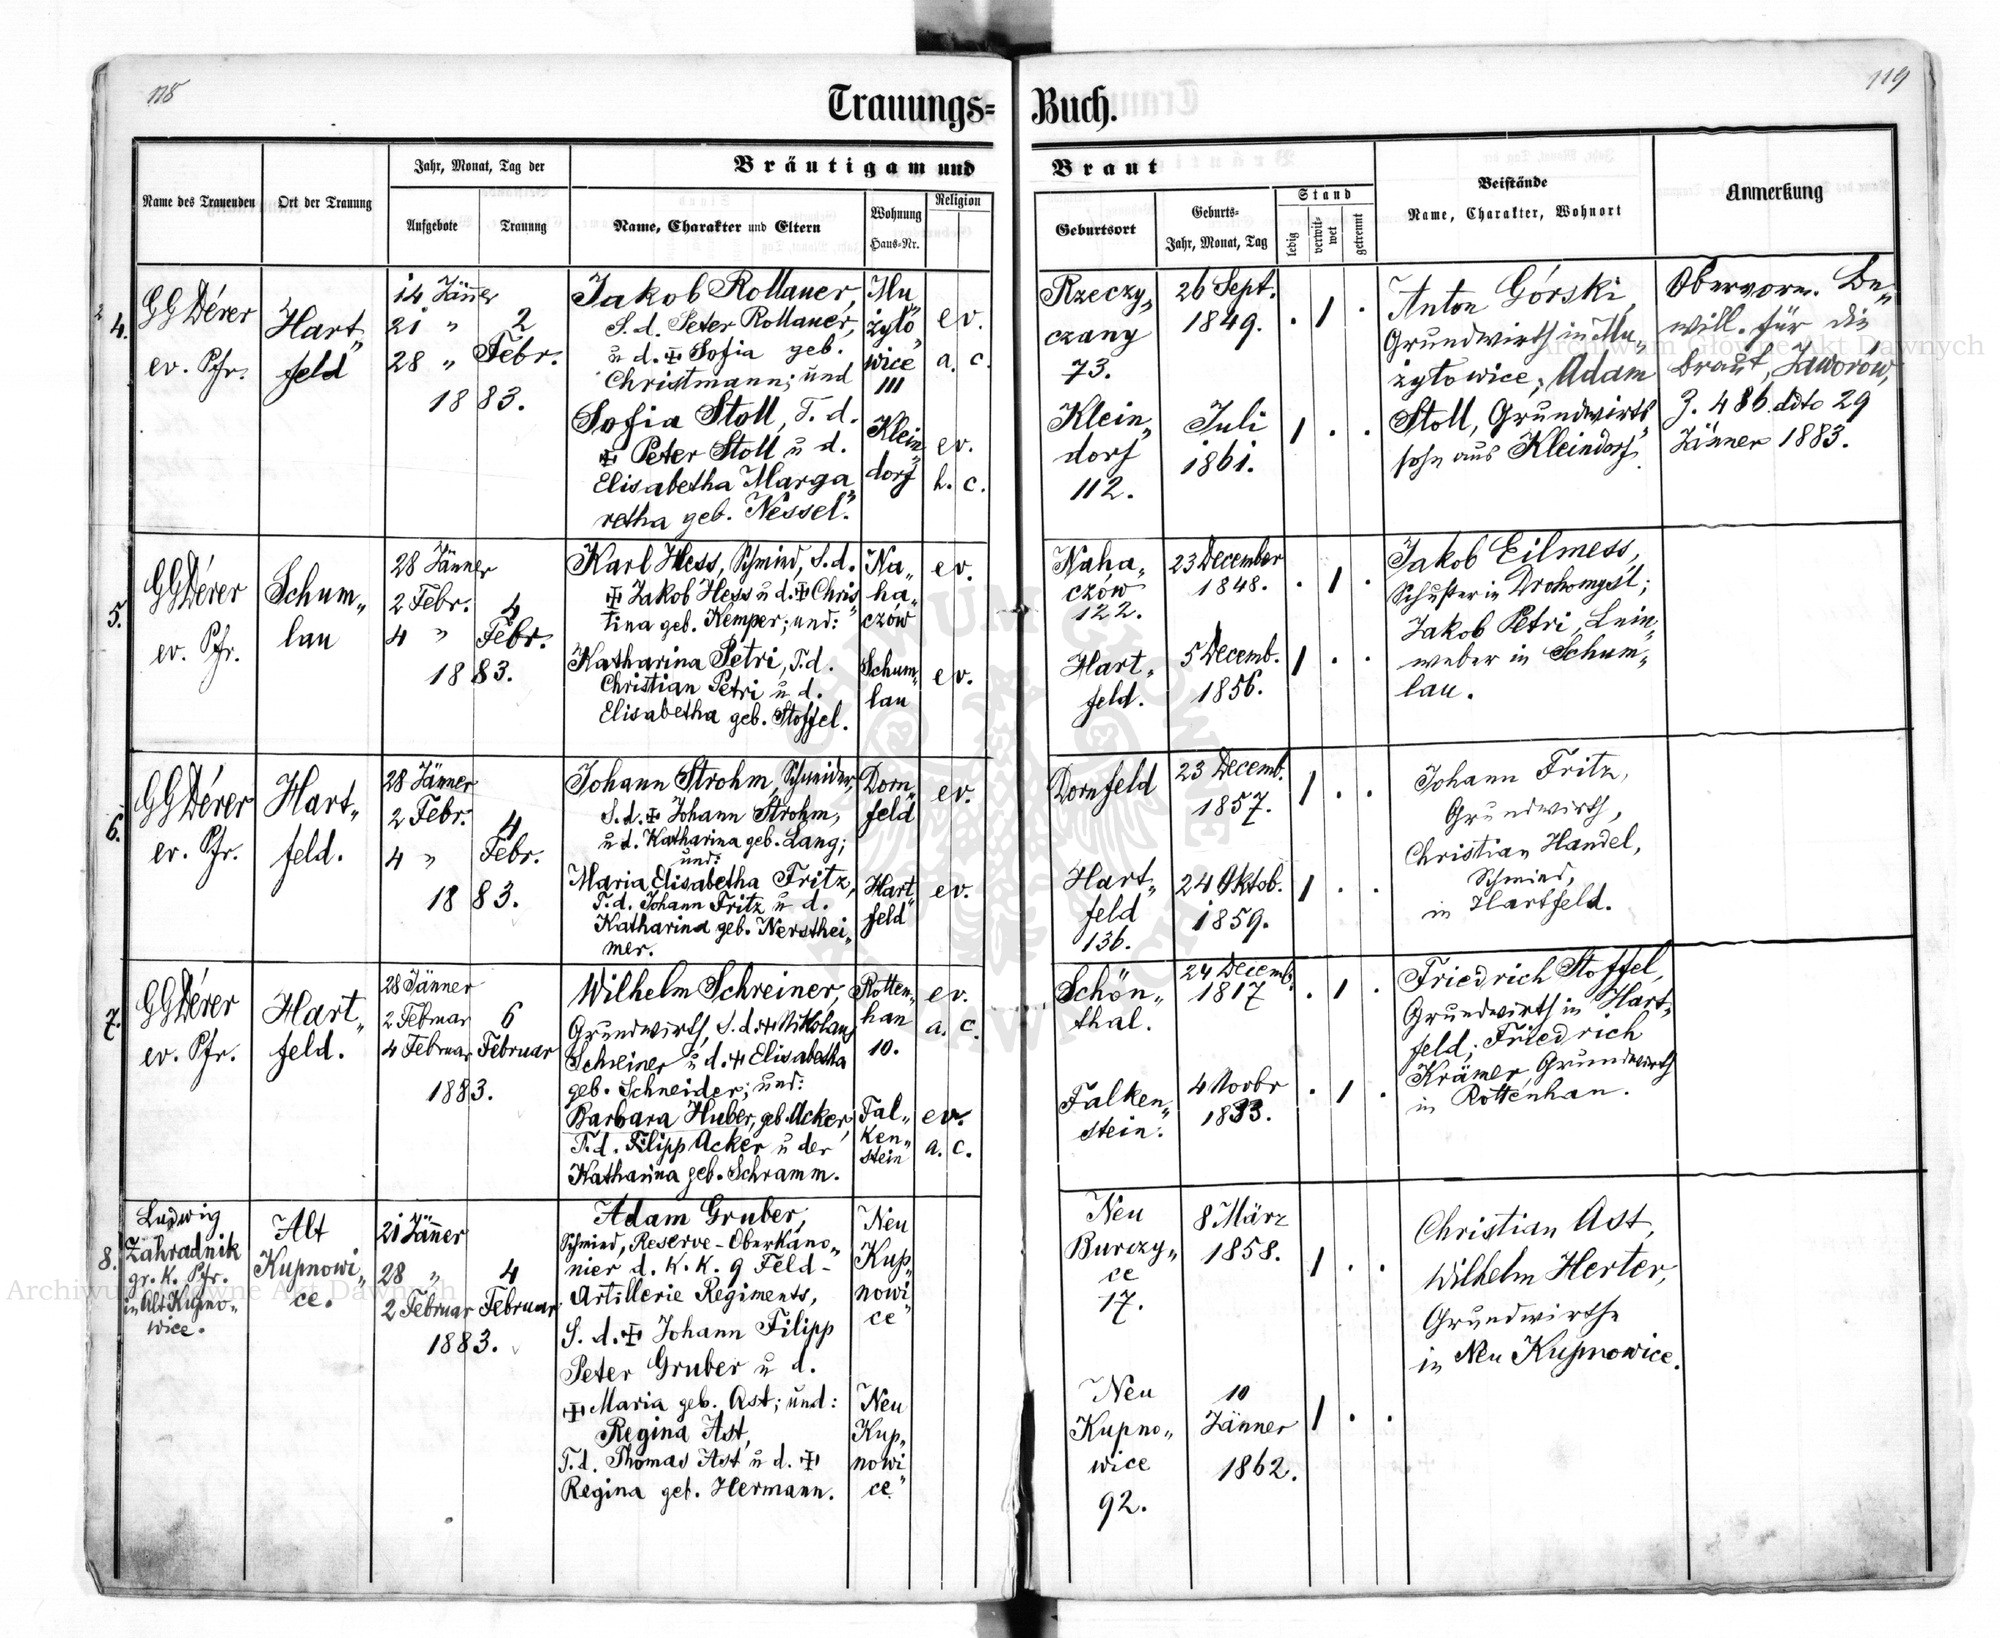 118
119
Trauungs= Buch.
Name des Trauenden
Ort der Trauung
Jahr, Monat, Tag der
Aufgebote
Trauung
Bräutigam und Braut
Name, Charakter und Eltern
Wohnung
Haus-Nr.
Religion
Geburtsort
Geburts-
Jahr, Monat, Tag
Stand
ledig
verwit-
wet
getrennt
Beistände
Name, Charakter, Wohnort
Anmerkung
4.
GGDérer
ev. Pfr.
Hart„
feld
14 Jänner
21 „
28 „
2
Febr.
1883.
Jakob Rollauer,
S. d. Peter Rollauer,
u d. ‡ Sofia geb.
Christmann; und
Sofia Stoll, T. d.
‡ Peter Stoll u d.
Elisabetha Marga„
retha geb. Nessel.
Mu„
żyło„
wice
111
Klein„
dorf
ev.
a. c.
ev.
h. c.
Rzeczy„
czany
73.
Klein„
dorf
112.
26 Sept.
1849.
Juli
1861.
. 1 .
1 . .
Anton Górski,
Grundwirth in Mu„
żyłowice; Adam
Stoll, Grundwirths
sohn aus Kleindorf.
Obervorm. Be„
will. für die
Braut, Jaworów,
Z. 486 ddto 29
Jänner 1883.
5.
GGDérer
ev. Pfr.
Schum„
lau
28 Jänner
2 Febr.
4 „
4
Febr.
1883.
Karl Hess, Schmied, S. d.
‡ Jakob Hess u d. ‡ Chris„
tina geb. Kemper; und:
Katharina Petri, T. d.
Christian Petri u d.
Elisabetha geb. Stoffel.
Na„
ha„
czów
Schum„
lau
ev.
ev.
Naha„
czów
122.
Hart„
feld.
23 December
1848.
5 Decemb.
1856.
. 1 .
1 . .
Jakob Eilmess,
Schuster in Drohomyśl;
Jakob Petri, Lein„
weber in Schum„
lau.
6.
GGDérer
ev. Pfr.
Hart„
feld.
28 Jänner
2 Febr.
4 „
4
Febr.
1883.
Johann Strohm, Schneider,
S. d. ‡ Johann Strohm,
u d. Katharina geb. Lang;
und:
Maria Elisabetha Fritz,
T. d. Johann Fritz u d.
Katharina geb. Nersthei„
mer.
Dorn„
feld
Hart„
feld
ev.
ev.
Dornfeld
Hart„
feld
136.
23 Decemb.
1857.
24 Oktob.
1859.
1 . .
1 . .
Johann Fritz,
Grundwirth,
Christian Handel,
Schmied,
in Hartfeld.
7.
GGDérer
ev. Pfr.
Hart„
feld.
28 Jänner
2 Februar
4 Februar
6
Februar
1883.
Wilhelm Schreiner,
Grundwirth, S. d. ‡ Nikolaus
Schreiner u d. ‡ Elisabetha
geb. Schneider; und:
Barbara Huber, geb. Acker,
T. d. Filipp Acker u der
Katharina geb. Schramm.
Rotten„
han
10.
Fal„
ken„
stein
ev.
a. c.
ev.
a. c.
Schön„
thal.
Falken„
stein.
24 Decemb.
1817
4 Novbr
1833.
. 1 .
. 1 .
Friedrich Stoffel,
Grundwirth in Hart„
feld; Friedrich
Krämer, Grundwirth
in Rottenhan.
8.
Ludwig
Zahradnik
gr. k. Pfr.
in Alt Kupno„
wice.
Alt
Kupnowi„
ce.
21 Jänner
28 „
2 Februar
4
Februar
1883.
Adam Gruber,
Schmied, Reserve-Oberkano„
nier d. K. K. 9 Feld-
Artillerie Regiments,
S. d. ‡ Johann Filipp
Peter Gruber u d.
‡ Maria geb. Ast; und:
Regina Ast,
T. d. Thomas Ast u d. ‡
Regina geb. Hermann.
Neu
Kup„
nowi„
ce
Neu
Kup„
nowi„
ce
Neu
Burczy„
ce
17.
Neu
Kupno„
wice
92.
8 März
1858.
10
Jänner
1862.
1 . .
1 . .
Christian Ast,
Wilhelm Herter,
Grundwirthe
in Neu Kupnowice.
Archiwum Główne Akt Dawnych
Archiwum Główne Akt Dawnych
ARCHIWUM GŁÓWNE AKT DAWNYCH